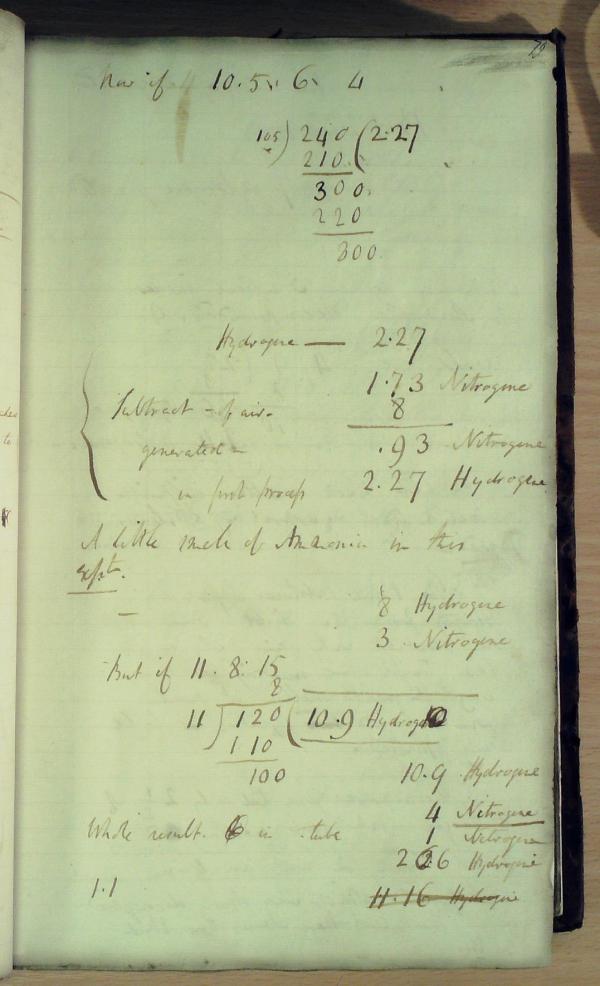 79
Now if 10.5 : 6 : 4
105) 240 (2.27
210
300
220
300
Hydrogene — 2.27
1.73 Nitrogene
Subtract - of air - 8
generated - .93 Nitrogene
in first process 2.27 Hydrogene
A little smell of Ammonia in this
expt.
8 Hydrogene
3 Nitrogene
But if 11 . 8 : 15
8
11) 120 (10.9 Hydrogene
110
100
10.9 Hydrogene
4 Nitrogene
Whole result. 6 in tube 1 Nitrogene
2 6 Hydrogene
1.1
11.16 Hydrogene